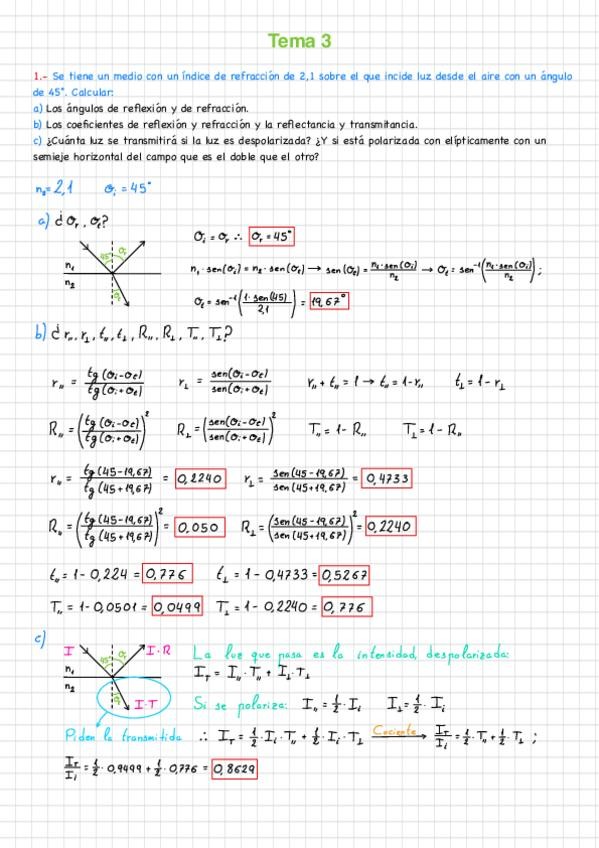 Tema 3
1.- Se tiene un medio con un índice de refracción de 2,1 sobre el que incide luz desde el aire con un ángulo
de 45°. Calcular:
a) Los ángulos de reflexión y de refracción.
b) Los coeficientes de reflexión y refracción y la reflectancia y transmitancia.
c) ¿Cuánta luz se transmitirá si la luz es despolarizada? ¿Y si está polarizada con elípticamente con un
semieje horizontal del campo que es el doble que el otro?
n₂=2,1 σi = 45°
a) ¿σr, σt?
45 σr
n₁
n₂
σt
σi = σr ∴ σr = 45°
n₁·sen(σi) = n₂·sen(σt) → sen(σt) = n₁·sen(σi)/n₂ → σt = sen⁻¹(n₁·sen(σi)/n₂);
σt = sen⁻¹(1·sen(45)/2,1) = 19,67°
b) ¿r∥, r⊥, t∥, t⊥, R∥, R⊥, T∥, T⊥?
r∥ = tg(σi-σt)/tg(σi+σt) r⊥ = sen(σi-σt)/sen(σi+σt) r∥ + t∥ = 1 → t∥ = 1-r∥ t⊥ = 1-r⊥
R∥ = (tg(σi-σt)/tg(σi+σt))² R⊥ = (sen(σi-σt)/sen(σi+σt))² T∥ = 1-R∥ T⊥ = 1-R∥
r∥ = tg(45-19,67)/tg(45+19,67) = 0,2240 r⊥ = sen(45-19,67)/sen(45+19,67) = 0,4733
R∥ = (tg(45-19,67)/tg(45+19,67))² = 0,050 R⊥ = (sen(45-19,67)/sen(45+19,67))² = 0,2240
t∥ = 1-0,224 = 0,776 t⊥ = 1-0,4733 = 0,5267
T∥ = 1-0,0501 = 0,0499 T⊥ = 1-0,2240 = 0,776
c)
I 45 σr I·R
n₁
n₂
I·T
Piden la transmitida
La luz que pasa es la intensidad, despolarizada:
I_T = I∥·T∥ + I⊥·T⊥
Si se polariza: I∥ = 1/2·Ii I⊥ = 1/2·Ii
∴ I_T = 1/2·Ii·T∥ + 1/2·Ii·T⊥ Cociente → I_T/Ii = 1/2·T∥ + 1/2·T⊥;
I_T/Ii = 1/2·0,9499 + 1/2·0,776 = 0,8629